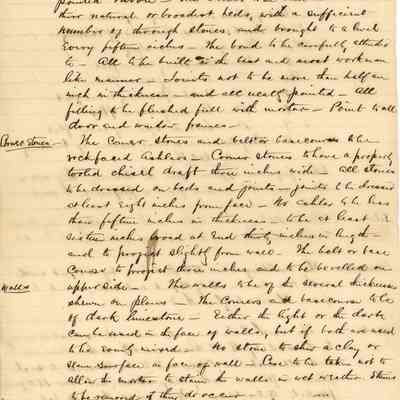 their natural or broadest beds, with a sufficient
number of through stones, and brought to a level
Every fifteen inches — The bond to be carefully attended
to — All to be built in the best and most workman
like manner — Joints not to be more than half an
inch in thickness — and all neatly pointed — All
filling to be flushed full with mortar — Point to all
door and window frames —
The Corner Stones and belt or base course to be
rockfaced Ashlers — Corner stones to have a properly
tooled chisell draft three inches wide — All stones
to be dressed on beds and joints — joints to be dressed
at least Eight inches from face — No ashler to be less
than fifteen inches in thickness — to be at least
sixteen inches broad at End thirty inches in length —
and to project slightly from wall — The belt or base
Course to project three inches and to be bevelled on
upper side — The walls to be of the several thicknesses
shewn on plans — The Corners and base course to be
of dark limestone — Either the light or the dark
can be used in the face of walls, but if both are used
to be Evenly mixed — No stone to shew a clay or
seam surface in face of wall — Care to be taken not to
allow the mortar to stain the walls in wet weather Stains
to be removed if they do occur —
Walls